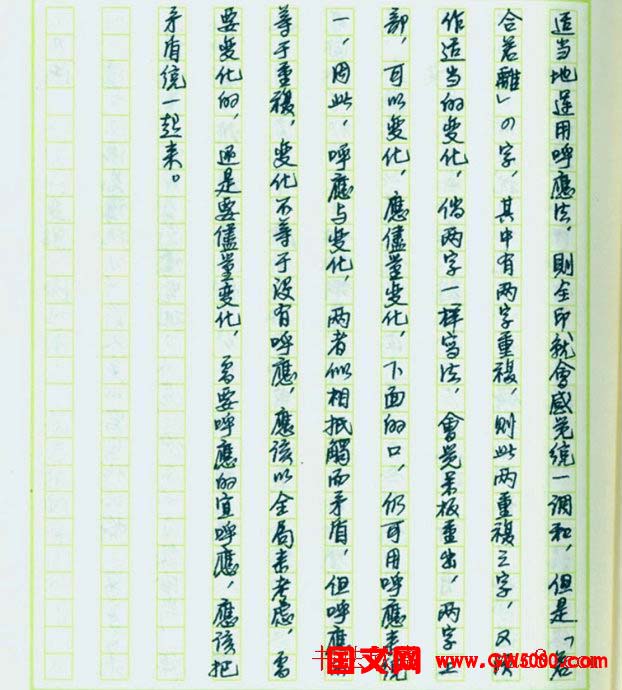 适当地运用呼應法，則全印就會感觉統一调和，但是「若
合若離」の字，其中有两字重複，則此两重複之字，又须
作适当的变化，倘两字一样写法，會觉呆板重出，两字上
部，可以变化，應儘量变化，下面的口，仍可用呼應来统
一，因此，呼應与变化，两者似相抵觸而矛盾，但呼應
等于重複，变化不等于没有呼應，應该以全局来考虑，需
要变化的，还是要儘量变化，需要呼應的宜呼應，應该把
矛盾统一起来。
国文网 www.GW5000.com